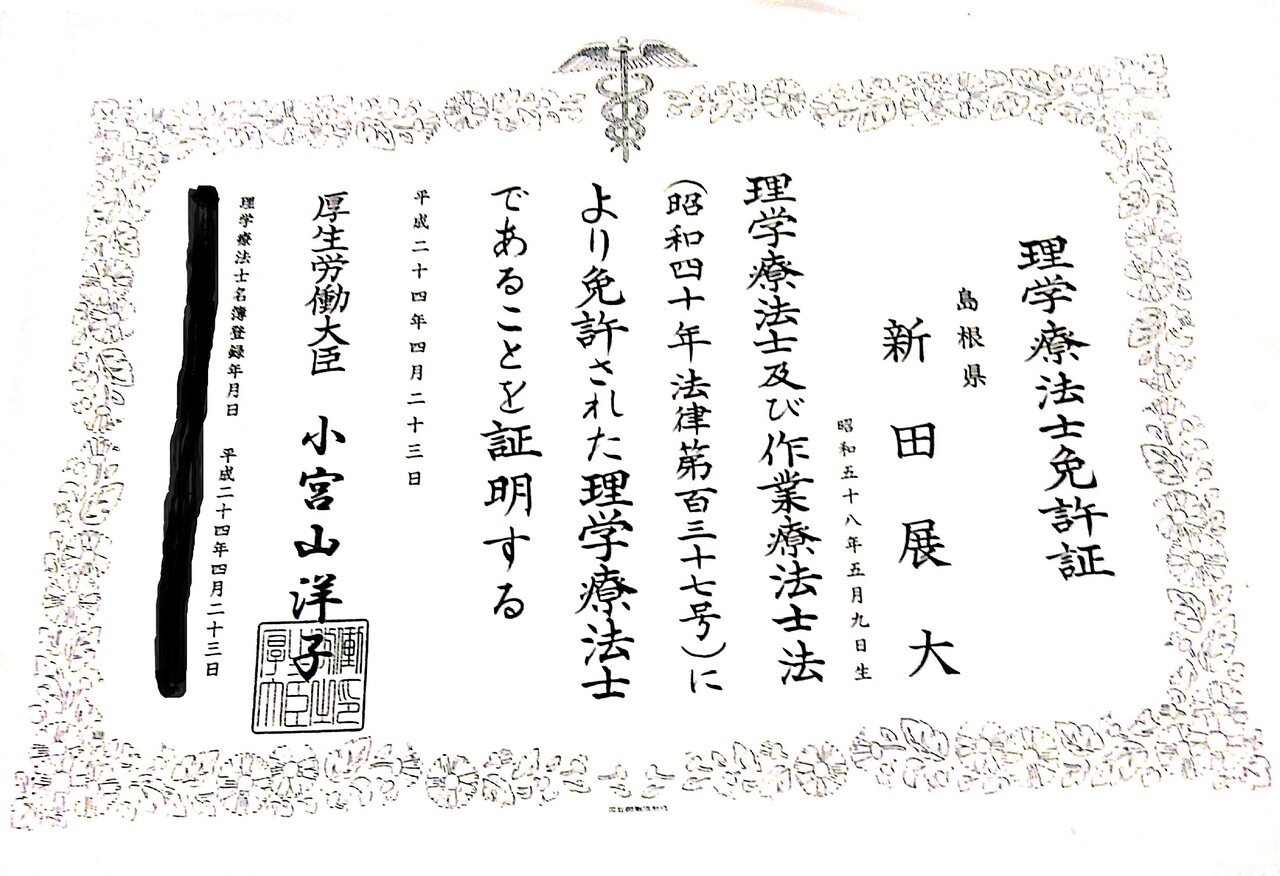 理学療法士免許証
島根県
新田展大
昭和五十八年五月九日生
理学療法士及び作業療法士法
(昭和四十年法律第百三十七号)に
より免許された理学療法士
であることを証明する
平成二十四年四月二十三日
厚生労働大臣 小宮山洋子
理学療法士名簿登録年月日 平成二十四年四月二十三日